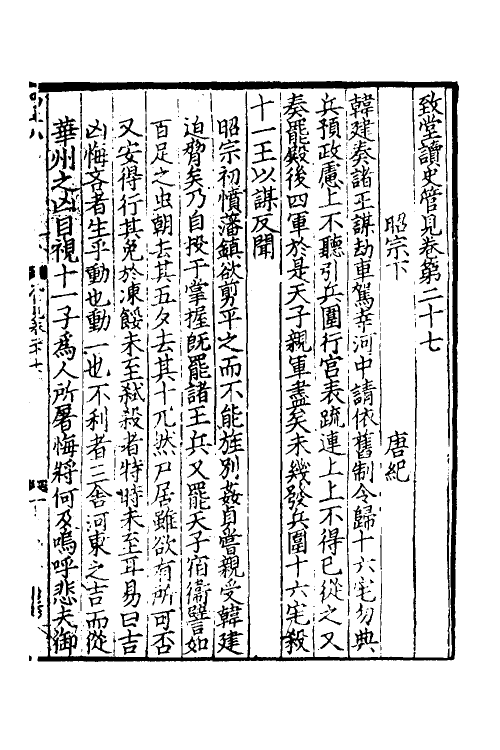 致堂讀史管見卷第二十七
昭宗下 唐紀
韓建奏諸王謀劫車駕幸河中請依舊制令歸十六宅勿典
兵預政慮上不聽引兵圍行宮表疏連上上不得已從之又
奏罷殿後四軍於是天子親軍盡矣未幾發兵圍十六宅殺
十一王以謀反聞
昭宗初憤藩鎮欲剪平之而不能旌別姦良嘗親受韓建
迫脅矣乃自投于掌握旣罷諸王兵又罷天子宿衞譬如
百足之虫朝去其五夕去其十兀然尸居雖欲有所可否
又安得行其免於凍餒未至弑殺者特特未至耳易曰吉
凶悔吝者生乎動也動一也不利者三舍河東之吉而從
華州之凶目視十一子爲人所屠悔將何及嗚呼悲夫御